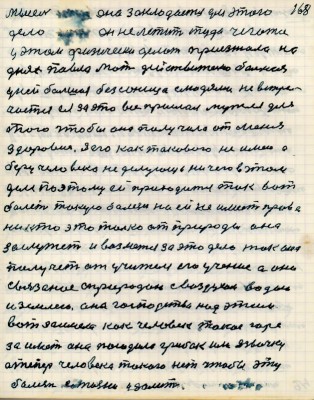 168
мысел она закладается для этого
дело он не летит туда чего та
у этом физически делат приезжала на
днях Павла мат действительно больная
у ней большая бессоница с людями не встре-
чается ей за это все прислал мужел для
того чтобы она получила от меня
здоровия. я его как такового не имею а
беру человека не делующь ничего в этом
деле поэтому ей приходится так вот
болет такую болезн на ей не имеет права
никто это только от природы она
заслужет и возмется за это дело так она
получет от учителя его учение а оно
связаное с природою с воздухом водою
и землею. она господства над этим
вот заимела как человек такое горе
за имет она породила грибок или язвочку
а теперь человека такого нет чтобы эту
болезн изделат.